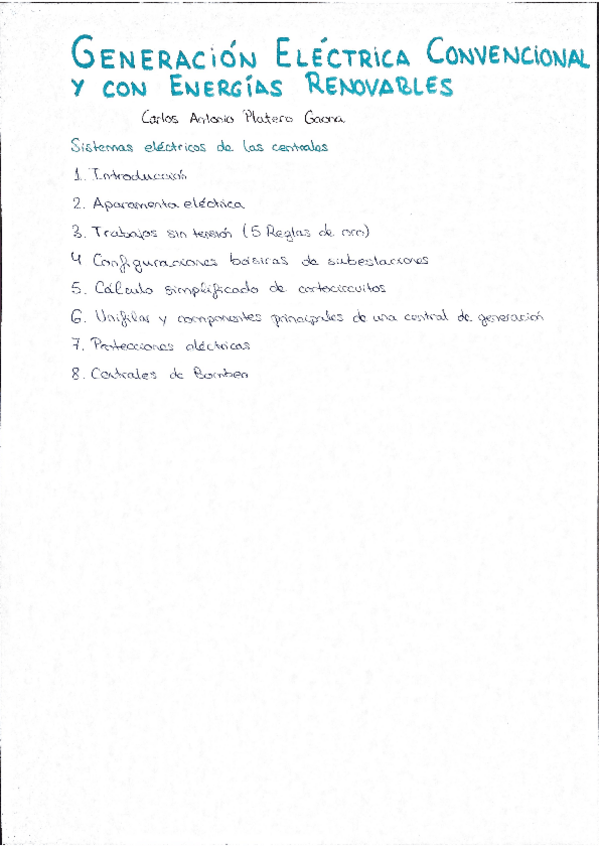 GENERACIÓN ELÉCTRICA CONVENCIONAL
Y CON ENERGÍAS RENOVABLES
Carlos Antonio Platero Gaona
Sistemas eléctricos de las centrales
1. Introducción
2. Aparamenta eléctrica
3. Trabajos sin tensión (5 Reglas de oro)
4 Configuraciones básicas de subestaciones
5. Cálculo simplificado de cortocircuitos
6. Unifilar y componentes principales de una central de generación
7. Protecciones eléctricas
8. Centrales de Bombeo